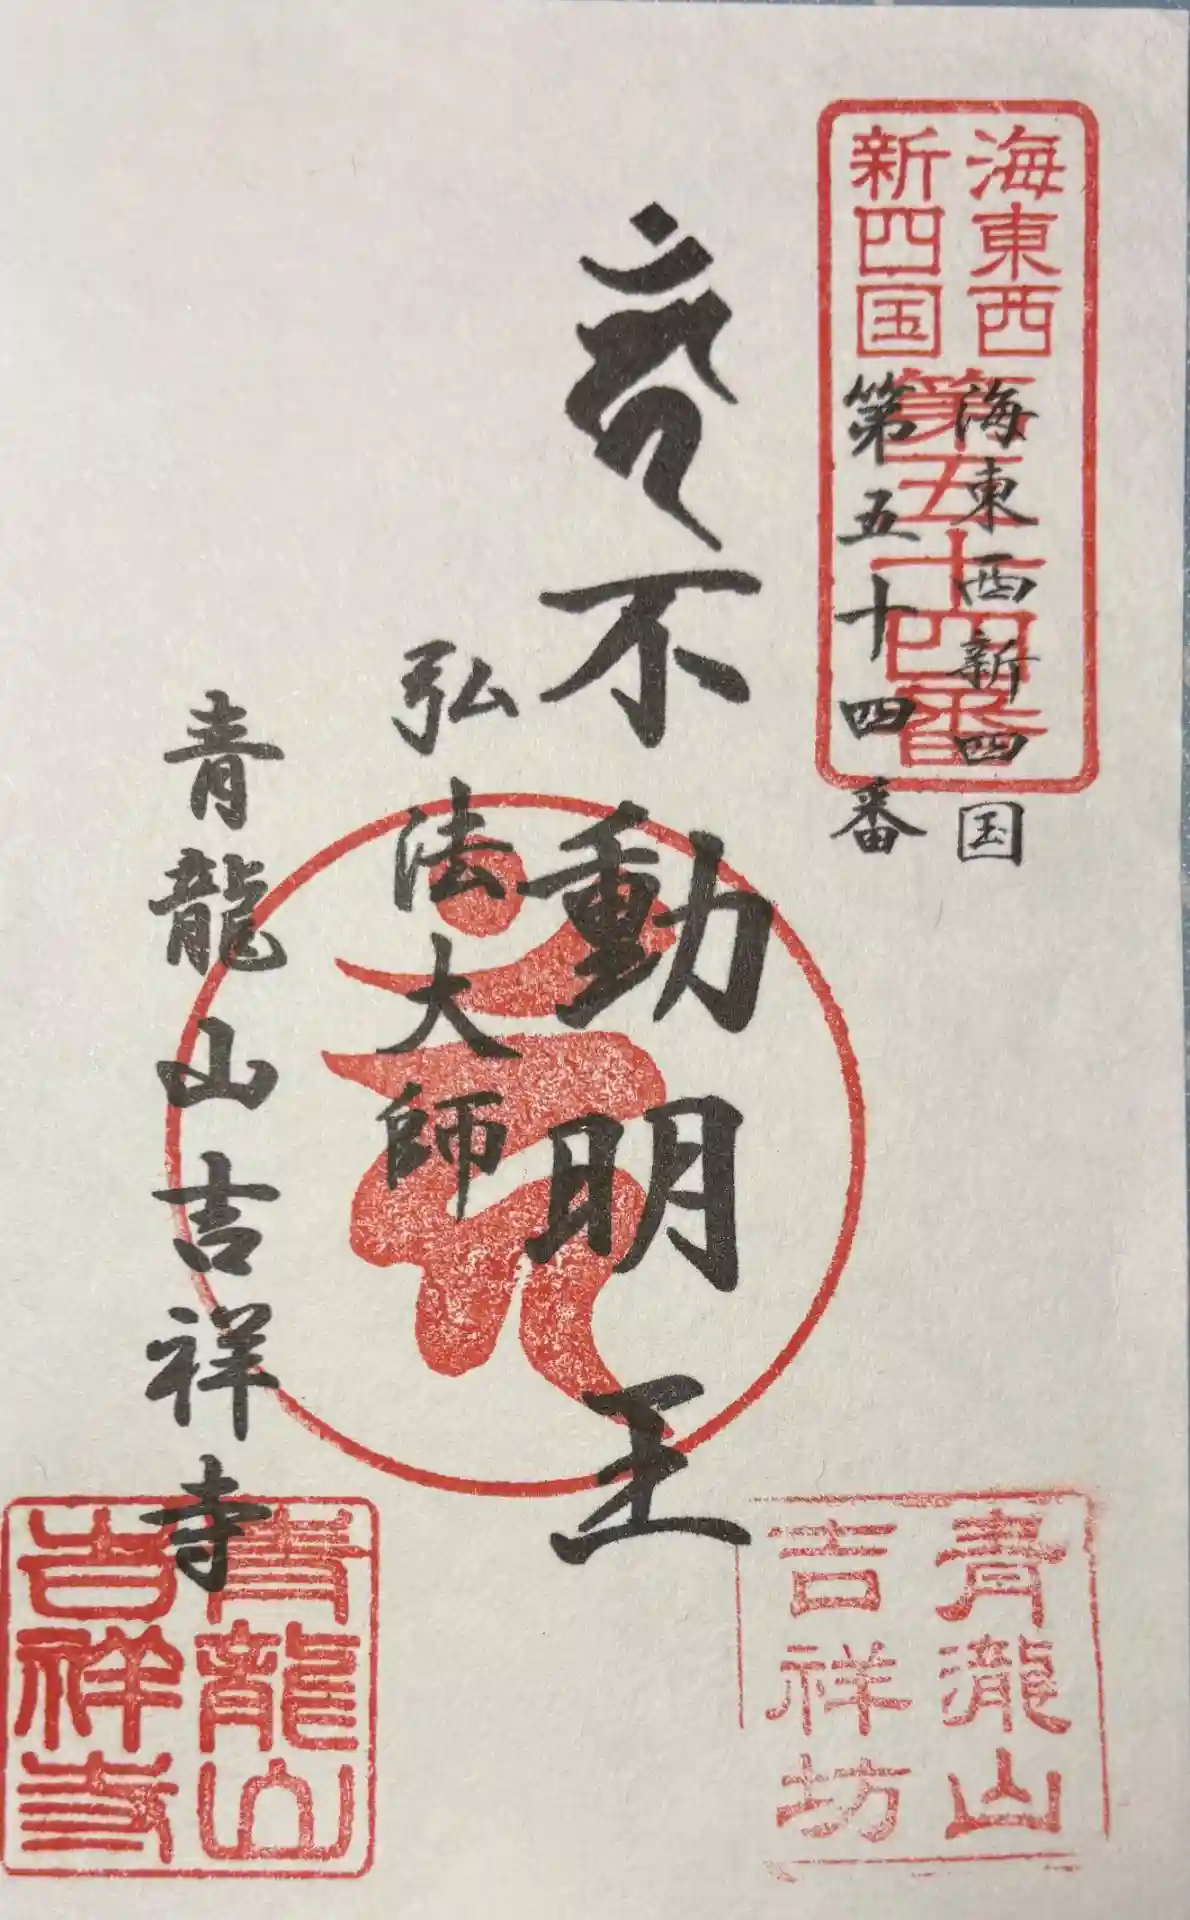 海東西
新四国
第五十四番
海東西新四国
第五十四番
不動明王
弘法大師
青龍山吉祥寺
青瀧山
吉祥坊
青龍山
吉祥寺